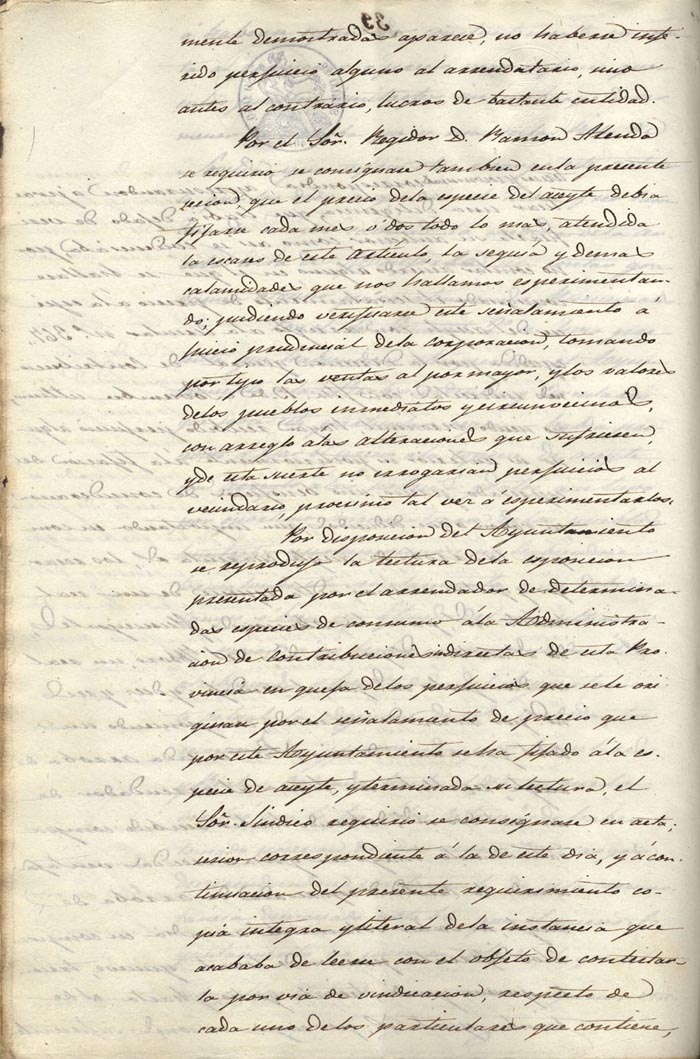 39
mente demostradas aparece, no haberse infe-
rido perjuicio alguno al arrendatario, sino
antes al contrario, lucros de bastante entidad.
Por el Sor. Regidor D. Ramon Alenda
se requirio se consignase tambien en la presente
sesion, que el precio dela especie del aceyte debia
fijarse cada mes ó dos todo lo mas, atendida
la escases de este articulo, la sequia y demas
calamidades que nos hallamos esperimentan-
do; pudiendo verificarse este señalamiento á
juicio prudencial dela corporacion, tomando
por tipo las ventas al por mayor, y los valores
delos pueblos inmediatos y circunvecinos,
con arreglo álas alteraciones que sufriesen,
y de esta suerte no irrogarian perjuicios al
vecindario, procsimo tal vez á esperimentarlos.
Por disposicion del Ayuntamiento
se reprodujo la lectura dela esposicion
presentada por el arrendador de determina-
das especies de consumo ála Administra-
cion de contribuciones indirectas de esta Pro-
vincia en queja delos perjuicios que se le ori-
ginan por el señalamento de precio que
por este Ayuntamiento se ha fijado ála es-
pecie de aceyte, y terminada su lectura, el
Sor. Sindico requirio se consignase en acta,
sesion correspondiente á la de este dia, y á con-
tinuacion del presente requirimiento co-
pia integra y literal dela instancia que
acababa de leerse con el objeto de contestar
la por via de vindicacion, respecto de
cada uno de los particulares que contiene,